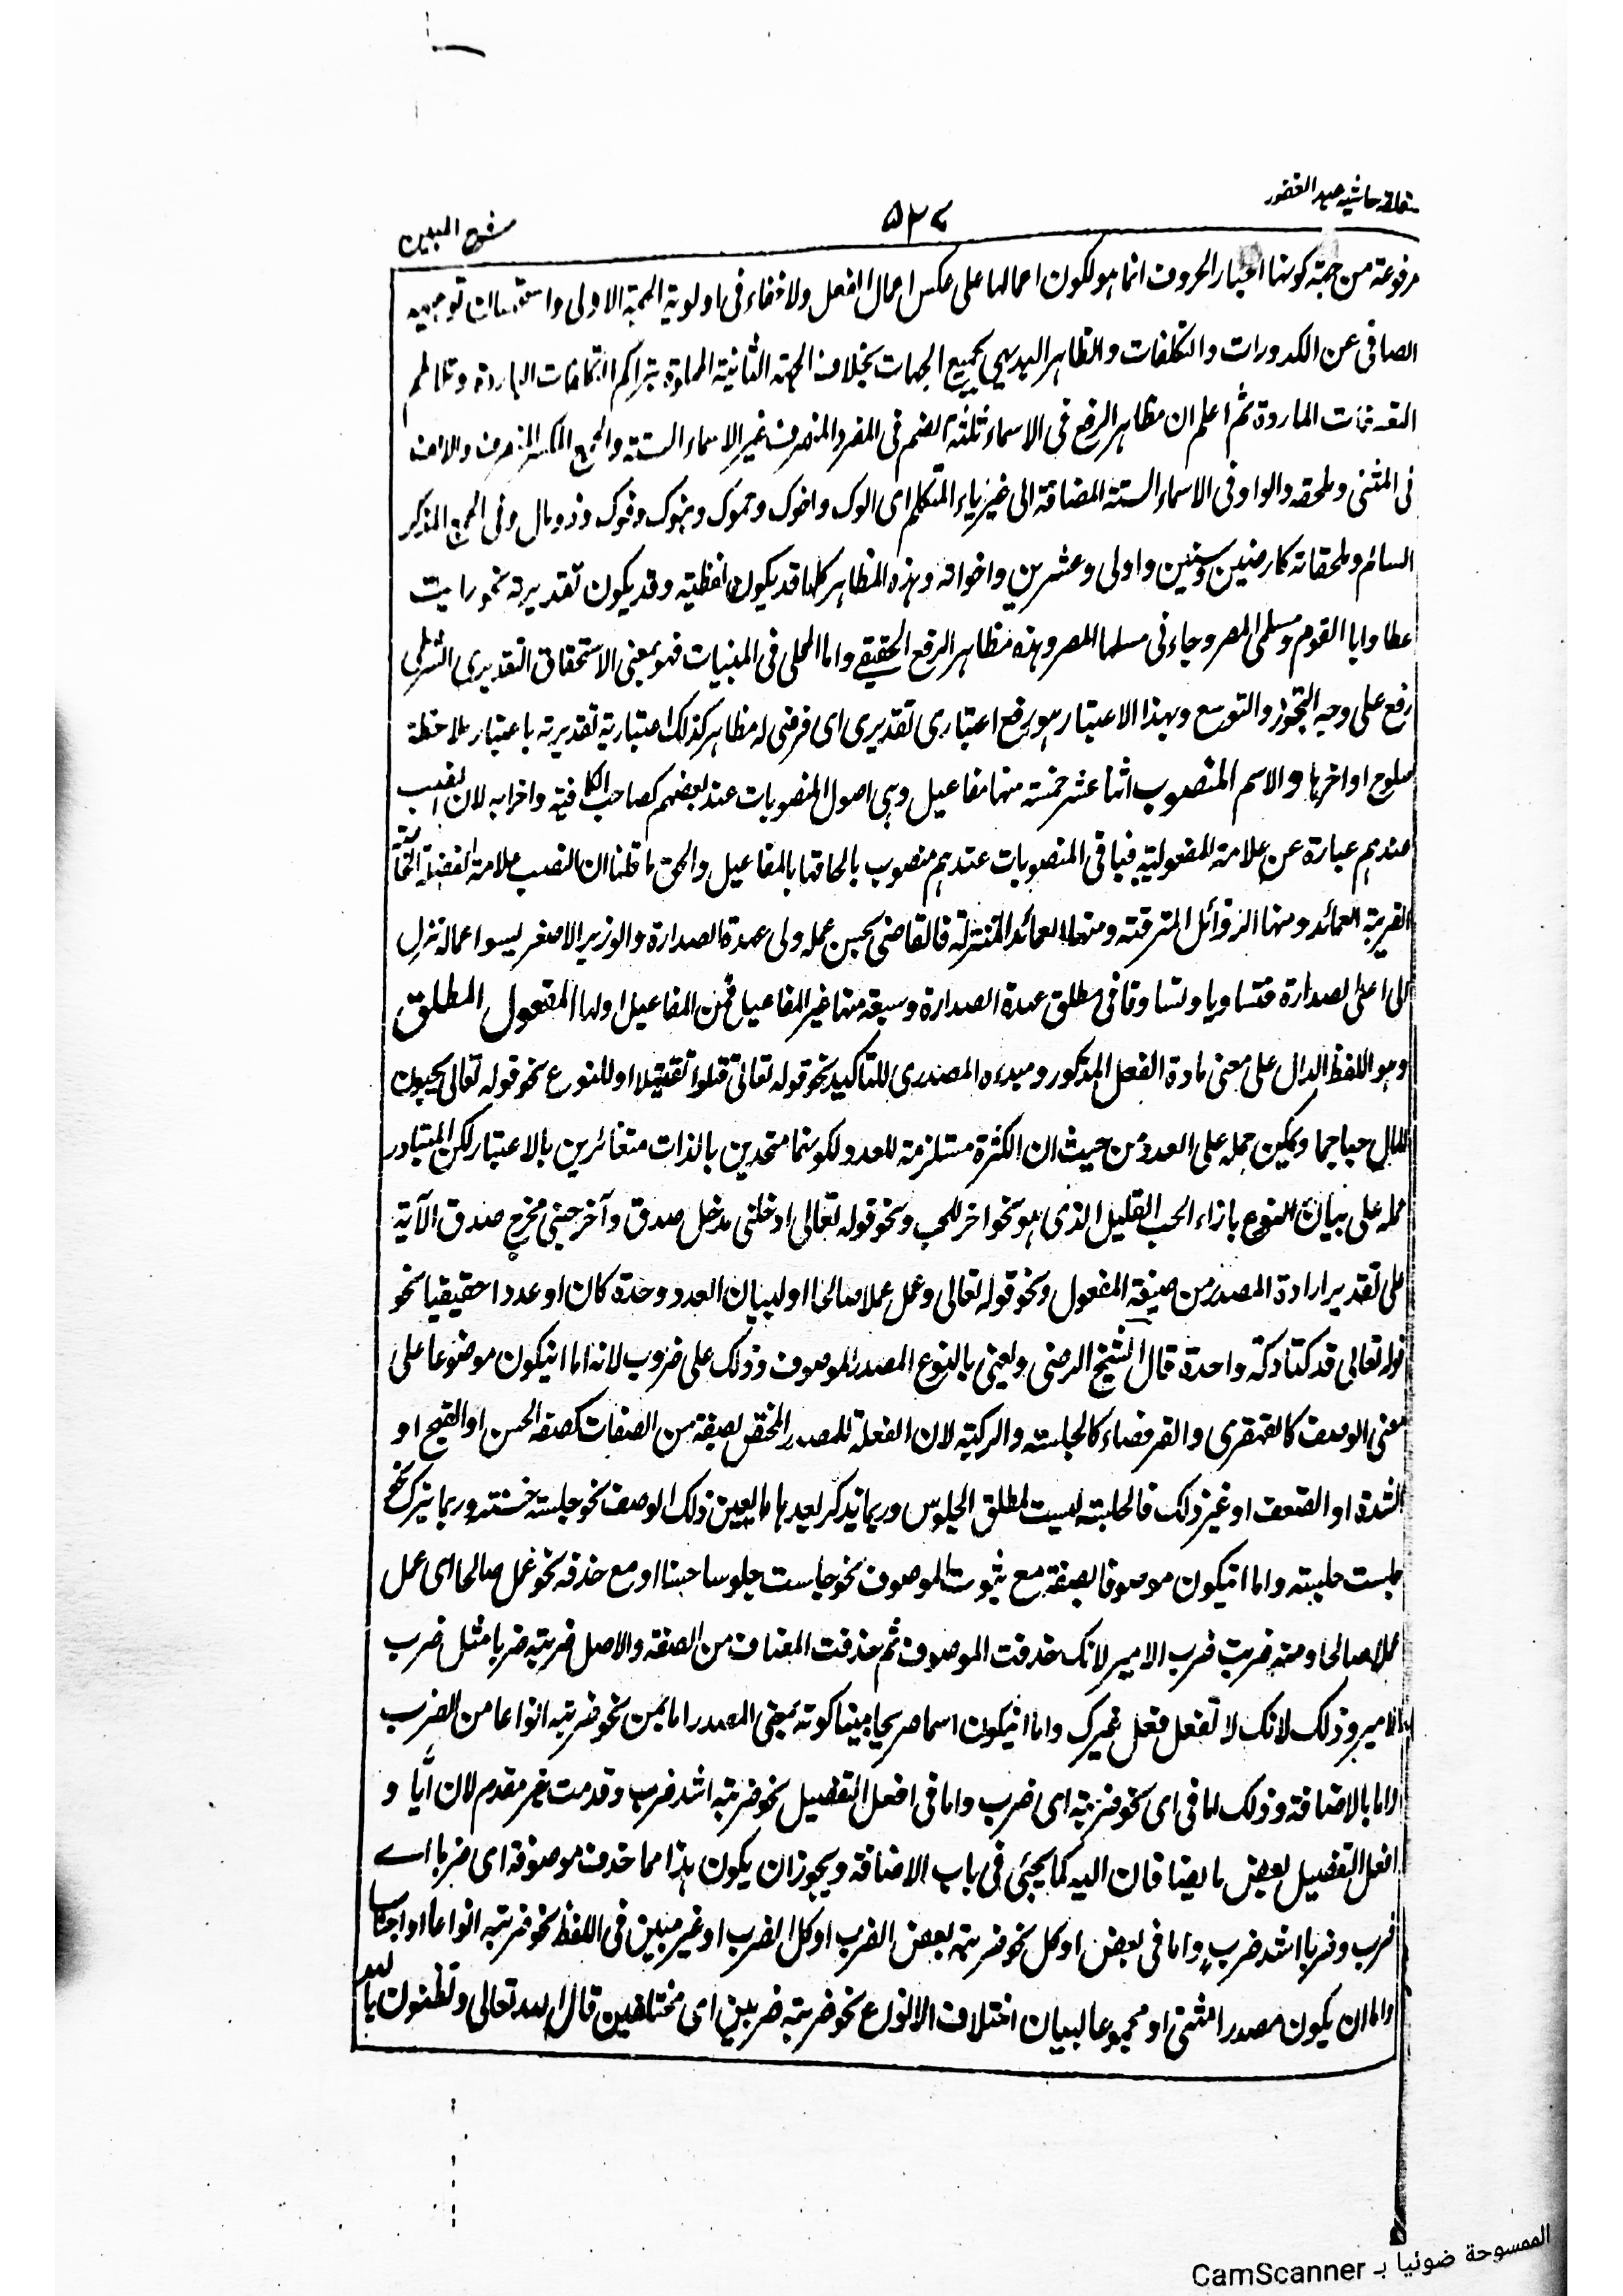 متعلقه حاشیه عبد الغفور
۵۲۷
شرح المبین
مرفوعة من جهة كونها اخبار الحروف انما هو لكون اعمالها على عكس اعمال الفعل ولا خفاء فی اولوية الجهة الاولى و توجيه
الصافی عن الكدورات والتكلفات والظاهر البديهی بجميع الجهات بخلاف الجهة الثانية المملوة بتراكم الباردة وتلاطم
الماردة ثم اعلم ان مظاهر الرفع فی الاسماء ثلثة الضم فی المفرد المنصرف غير الاسماء الستة والجمع المكسر المنصرف والالف
فی المثنی وملحقه والواو فی الاسماء الستة المضافة الى غير ياء المتكلم ای ابوک واخوک وحموک وهنوک وفوک وذو مال وفی الجمع المذكر
السالم وملحقاته كارضين وسنين واولی وعشرين واخواته وهذه المظاهر كلها قد يكون لفظية وقد يكون تقديرية نحو رايت
عطا وابا القوم ومسلمی المصر وجاءنی مسلما المصر وهذه مظاهر الرفع الحقيقے واما المحلی فی المبنيات فهو بمعنی الاستحقاق التقديری الشرطی
رفع على وجه التجوز والتوسع وبهذا الاعتبار هو رفع اعتباری تقديری ای فرضی له مظاهر كذلک اعتبارية تقديرية باعتبار ملاحظة
صلوح اواخرها و الاسم المنصوب اثنا عشر خمسة منها مفاعيل وهی اصول المنصوبات عند بعضهم كصاحب الكافية واضرابه لان النصب
عندهم عبارة عن علامة المفعولية فباقی المنصوبات عندهم منصوب بالحاقها بالمفاعيل والحق ما قلنا ان النصب علامة الفضلة
القريبة العمائد ومنها الزوائل المترقية ومنها العمائد المتنزلة فالقاضی بحسن عمله ولی عهدة الصدارة والوزير الاصغر بسوء اعماله نزل
الى اعلى الصدارة فتساويا وتساوقا فی مطلق عهدة الصدارة وسبعة منها غير المفاعيل فمن المفاعيل اولها المفعول المطلق
وهو اللفظ الدال على معنی مادة الفعل المذكور ومبدءه المصدری للتاكيد نحو قوله تعالى قتلوا تقتيلا او للنوع نحو قوله تعالى يحبون
المال حبا جما ويمكن حمله على العدد من حيث ان الكثرة مستلزمة للعدد لكونهما متحدين بالذات متغائرين بالاعتبار لكن المتبادر
حمله على بيان النوع بازاء الحب القليل الذی هو نحو اخر للحب ونحو قوله تعالى ادخلنی مدخل صدق وآخرجنی مخرج صدق الآية
على تقدير ارادة المصدر من صيغة المفعول ونحو قوله تعالى وعمل عملا صالحا او لبيان العدد وحدة كان او عددا حقيقيا نحو
قوله تعالى قد كتا دكة واحدة قال الشيخ الرضی ويعنی بالنوع المصدر الموصوف وذلک على ضروب لانه اما ان يكون موضوعا على
معنی الوصف كالقهقری والقرفصاء كالجلسة والركبة لان الفعلة للمصدر المختص بصفة من الصفات كصفة الحسن او القبح او
الشدة او الضعف او غير ذلک فالجلسة ليست لمطلق الجلوس وربما يذكر بعدها ما يعين ذلک الوصف نحو جلسة حسنة وربما يترک نحو
جلست جلسة واما ان يكون موصوفا بصفة مع ثبوت الموصوف نحو جلست جلوسا حسنا او مع حذفه نحو عمل صالحا ای عمل
عملا صالحا ومنه ضربت ضرب الامير لانک حذفت الموصوف ثم حذفت المضاف من الصفة والاصل ضربته ضربا مثل ضرب
الامير وذلک لانک لا تفعل فعل غيرک واما ان يكون اسما صريحا مبينا كونه بمعنی المصدر اما بمن نحو ضربته انواعا من الضرب
واما بالاضافة وذلک اما فی ای نحو ضربته ای ضرب واما فی افعل التفضيل نحو ضربته اشد ضرب وقدمت غير مقدم لان ايًّا و
افعل التفضيل بعض ما يضافان اليه كما يجئی فی باب الاضافة ويجوز ان يكون هذا مما حذف موصوفه ای ضربا اے
ضرب وضربا اشد ضرب واما فی بعض او كل نحو ضربته بعض الضرب او كل الضرب او غير مبين فی اللفظ نحو ضربته انواعا او اجناسا
واما ان يكون مصدرا مثنی او مجموعا لبيان اختلاف الانواع نحو ضربته ضربين ای مختلفين قال الله تعالى وتظنون بالله
الممسوحة ضوئيا بـ CamScanner